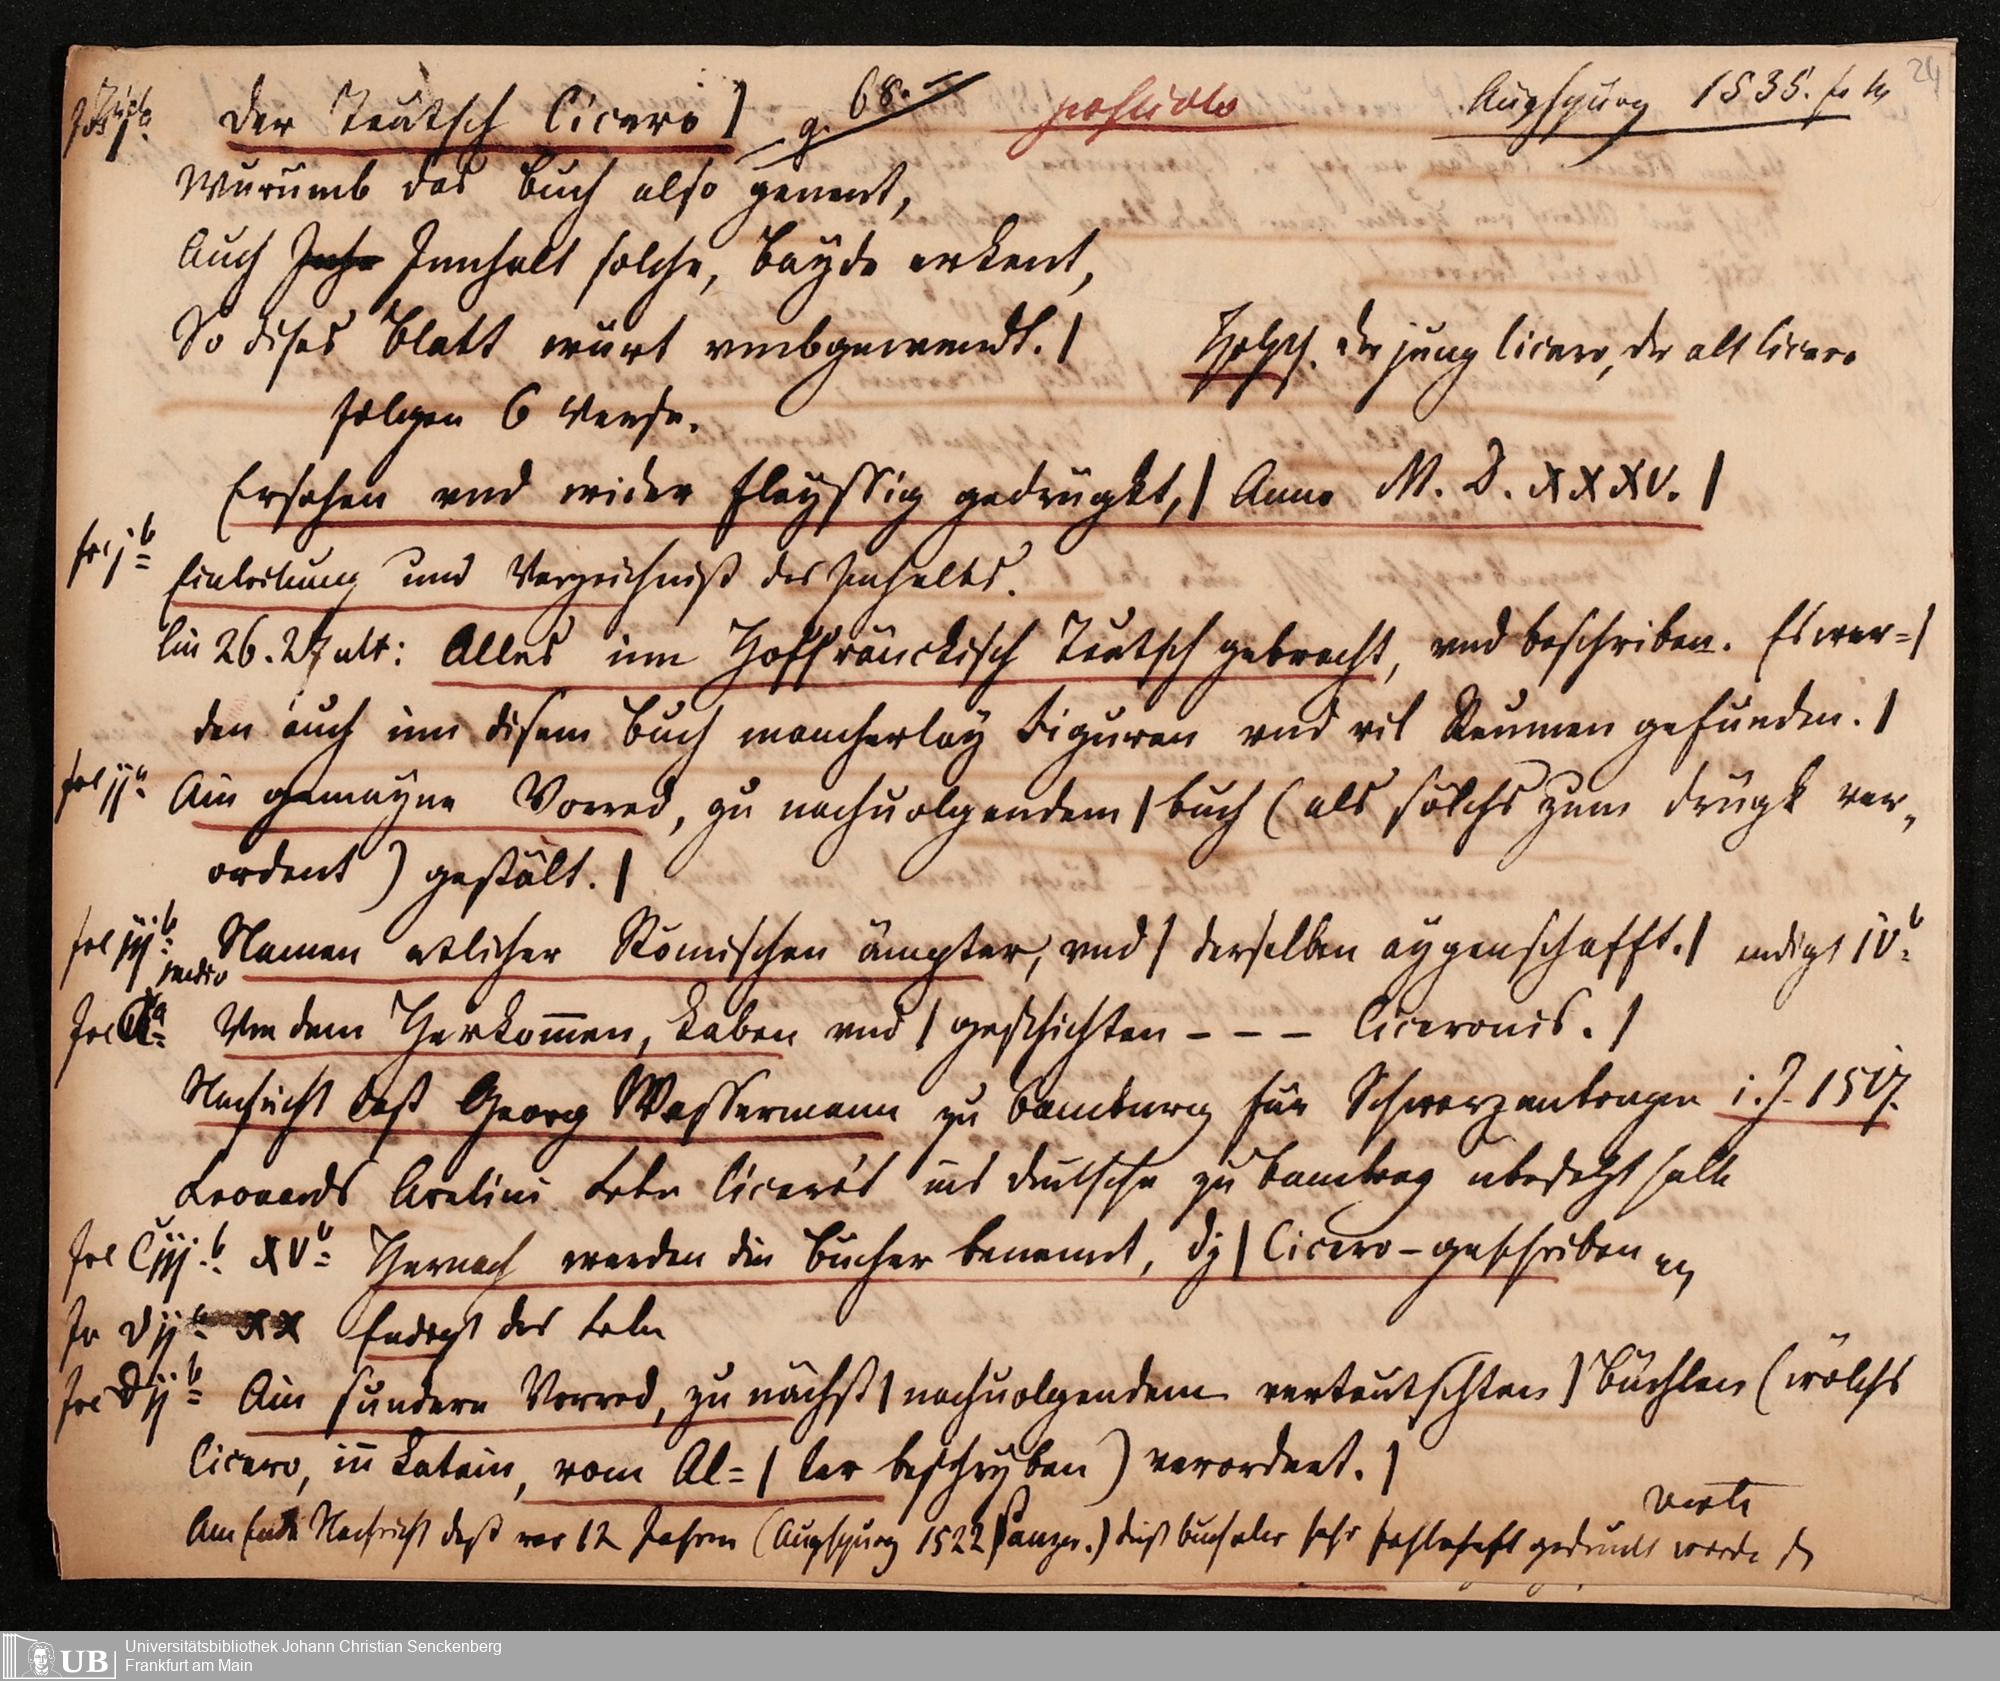 Der Teütsch Cicero | g. 68. possideo Augspurg 1535. fo
Wurumb das Buch also genent,
Auch Inhe Innhalt solche, Bayde erkent,
So dises Blatt würt vmbgewendt. |
Holzsch. der jung Cicero, der alt Cicero
folgen 6 Verse.
Ersehen vnd wider fleyssig gedrügkt, | Anno M. D. XXXV. |
fol j b Einleitung und Verzeichniß des Inhalts.
lin 26. 27 ult: Alles inn Hoffränckisch Teütsch gebracht, vnd beschriben. Es wer= |
den auch inn disem Buch mancherlay Figuren vnd vil Reumen gefunden. |
fol ij a Ain gemayne Vorred, zu nachuolgendem | buch (als sölchs zum drügk ver„
ordent) gestält. |
fol iij b medio Namen etlicher Römischen ämpter, vnd | derselben aygenschafft. | endigt IV b
fol a Von dem Herkom̄en, Leben vnd | geschichten - - - Ciceronis. |
Nachricht daß Georg Wassermann zu Bamburg für Schwarzenbergen i. J. 15
Leonards Aretini Leben Cicero's ins deutsche zu Bamberg übersetzt habe
fol Ciij b XV b Hernach werden die Bücher benennt, dy | Cicero - geschriben
fo Dij a XX Endigt das Leben
fol Dij b Ain sundere Vorred, zu nächst | nachuolgendem verteutschten | Büchlen (wölchs
Cicero, in̄ Latein, vom Al= | ter beschryben) verordnet. |
Am Ende Nachricht daß vor 12 Jahren (Augspurg 1522 Panzer.) dieß buch aber sehr fehlerhaft gedruckt worden
Universitätsbibliothek Johann Christian Senckenberg
UB Frankfurt am Main